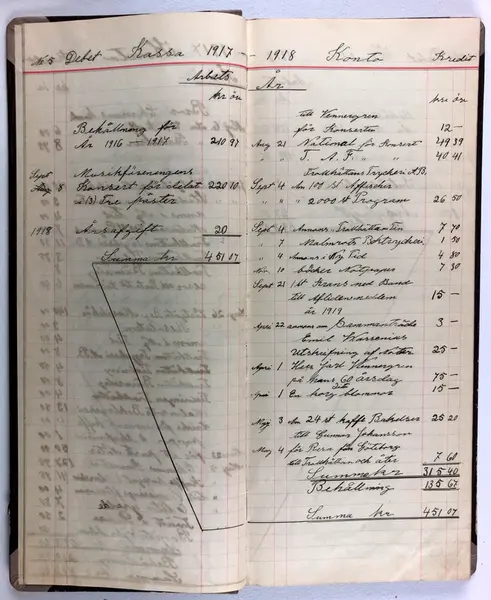 Debet Kassa 1917 — 1918 Konto Kredit
Arbets År
kr ör
kr ör
Behållning för
År 1916 - 1917 210 97
Sept 8 Musikföreningens
Konsert för delat
i 13) Tre poster 220 10
1918 Årsafgift 20
Summa Kr 451 07
till Vennergren
för Konserten 12 —
Aug 21 National för Konsert 49 39
" " T. A. F. " " 40 41
Trollhättans Tryckeri A.B.
Sept 4 An 100 st Afficher
" " 2000 st Program 26 50
Sept 4 Annons i Trollhättan 7 70
" 7 Malmrots Boktryckeri 1 50
" 4 Annons i Ny Tid 4 80
10 böcker Notpapper 7 80
Sept 21 1 st Krans med Band
till Afliden medlem 15 —
år 1919
April 22 annons om 3 —
Emil
Utskrifning af Noter 25 —
April 1 Herr Carl Vennergren
på Hans 60 årsdag 75 —
April 1 En korg blommor 15 —
Maj 3 An 24 st kaffe 25 20
till Gunnar Johansson
Maj 4 för Resa från Göteborg
till Trollhättan och åter 7 60
Summa Kr 315 40
Behållning 135 67
Summa Kr 451 07